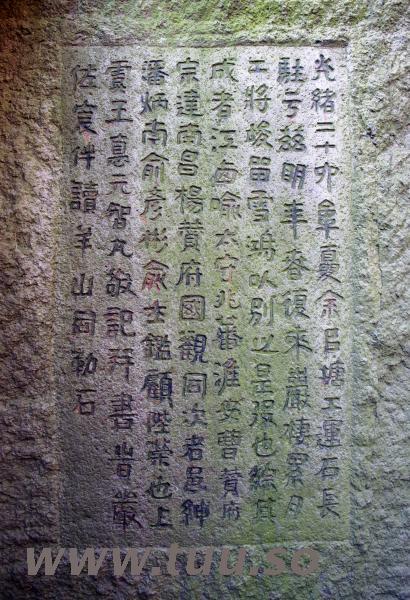 光緒二十六年夏余官塘工運石長
駐兮茲明年春復來巖棲累月
工將竣留雪鴻以別之是役也綜其
成者江西喻太守兆蕃淮安曹贊府
宗達南昌楊贊府國觀同次者邑紳
潘炳南俞彥彬俞士鑑顧陞榮也上
虞王元智凡敬記拜書巖
佐讀羊山同勒石
www.tuu.so